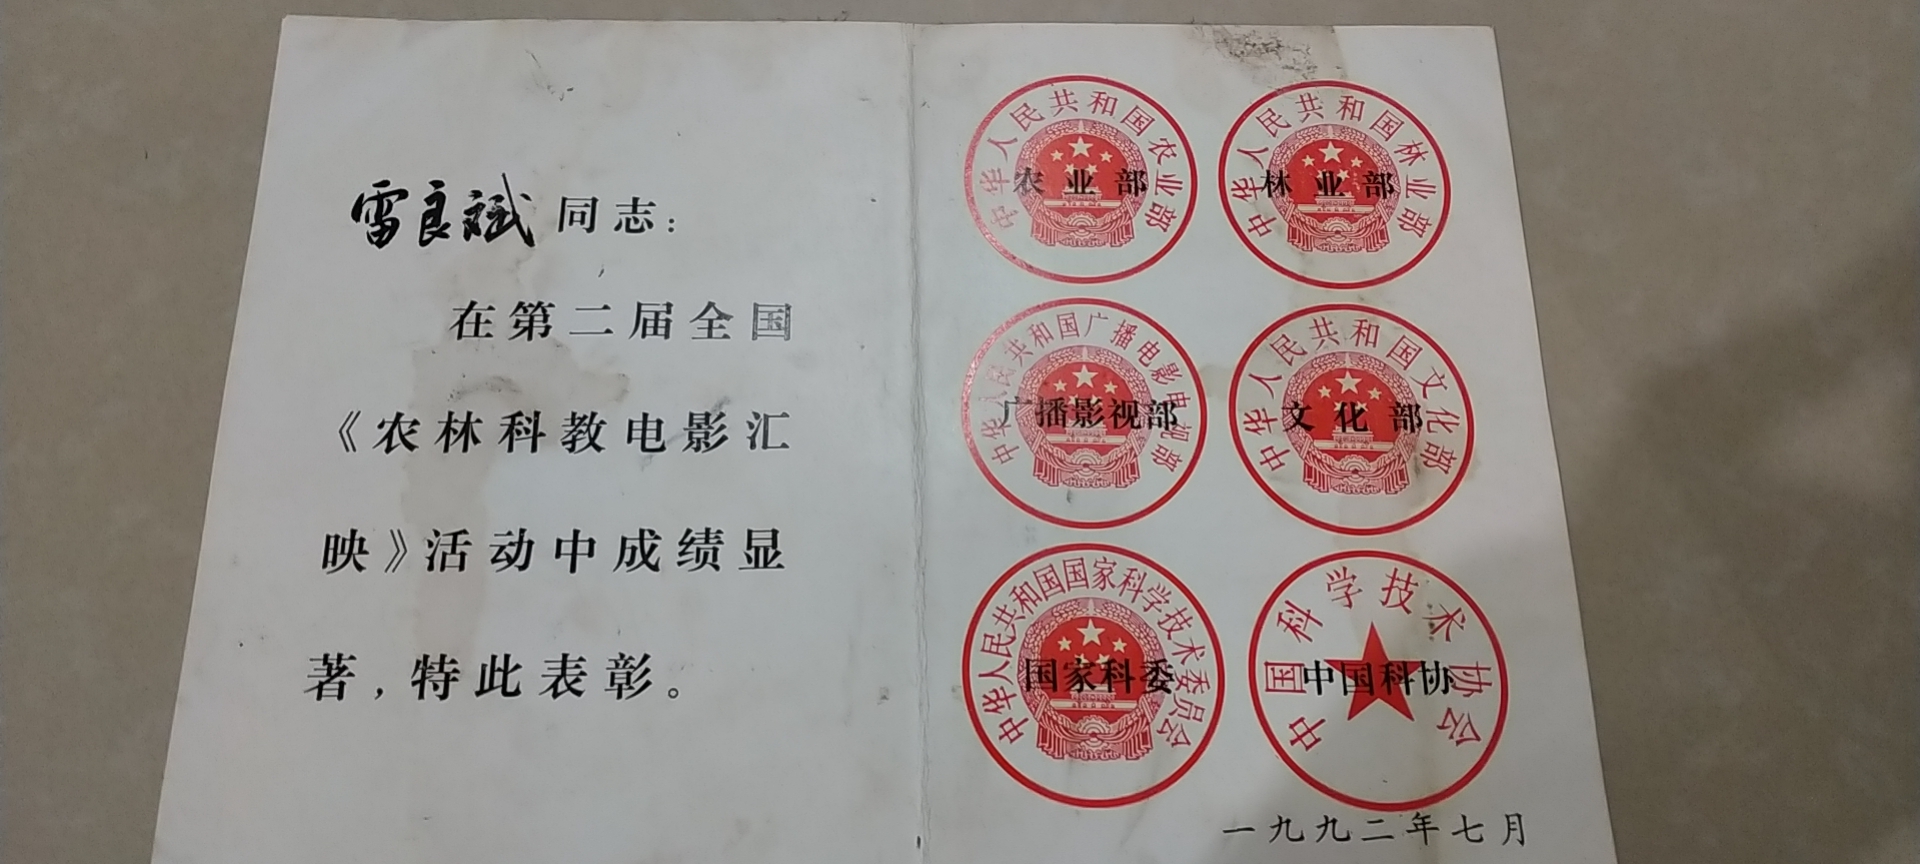 雷良斌同志：
在第二届全国
《农林科教电影汇
映》活动中成绩显
著，特此表彰。
中华人民共和国农业部
农业部
中华人民共和国林业部
林业部
中华人民共和国广播电影电视部
广播影视部
中华人民共和国文化部
文化部
中华人民共和国国家科学技术委员会
国家科委
中国科学技术协会
中国科协
一九九二年七月